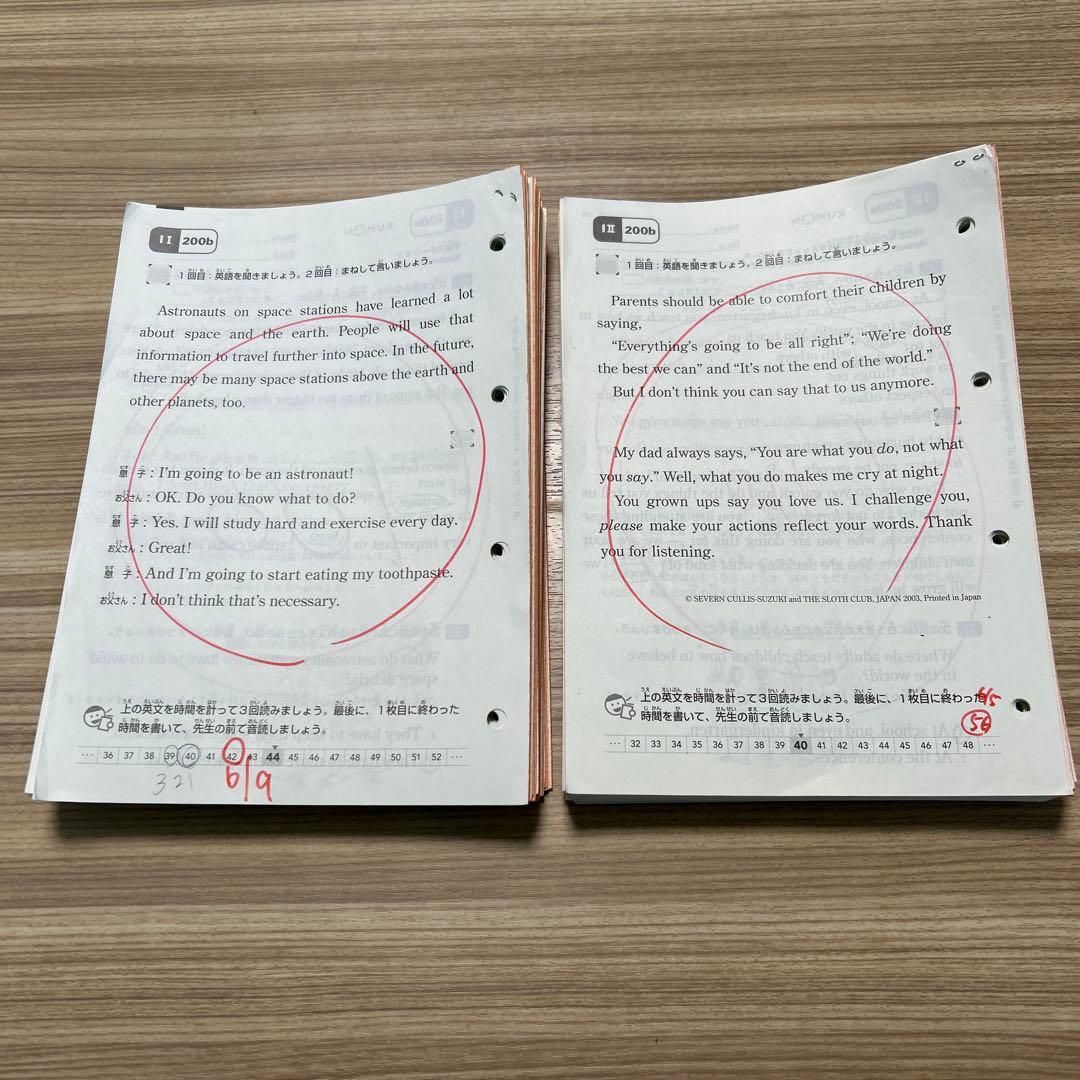 II 200b
1回目：英語を聞きましょう。2回目：まねして言いましょう。
Astronauts on space stations have learned a lot
about space and the earth. People will use that
information to travel further into space. In the future,
there may be many space stations above the earth and
other planets, too.
息子：I'm going to be an astronaut!
お父さん：OK. Do you know what to do?
息子：Yes. I will study hard and exercise every day.
お父さん：Great!
息子：And I'm going to start eating my toothpaste.
お父さん：I don't think that's necessary.
上の英文を時間を計って3回読みましょう。最後に、1枚目に終わった
時間を書いて、先生の前で音読しましょう。
… 36 37 38 39 40 41 42 43 44 45 46 47 48 49 50 51 52 …
3 2 1
6/9
IⅡ 200b
1回目：英語を聞きましょう。2回目：まねして言いましょう。
Parents should be able to comfort their children by
saying,
“Everything's going to be all right”; “We're doing
the best we can” and “It's not the end of the world.”
But I don't think you can say that to us anymore.
My dad always says, “You are what you do, not what
you say.” Well, what you do makes me cry at night.
You grown ups say you love us. I challenge you,
please make your actions reflect your words. Thank
you for listening.
© SEVERN CULLIS-SUZUKI and THE SLOTH CLUB, JAPAN 2003, Printed in Japan
上の英文を時間を計って3回読みましょう。最後に、1枚目に終わった
時間を書いて、先生の前で音読しましょう。
56
… 32 33 34 35 36 37 38 39 40 41 42 43 44 45 46 47 48 …